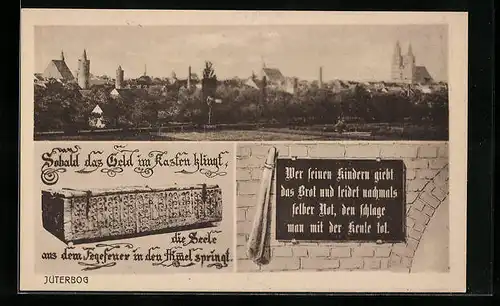 Sobald das Geld im Kasten klingt,
die Seele
aus dem Fegefeuer in den Himel springt.
Wer seinen Kindern giebt
das Brot und leidet nachmals
selber Not, den schlage
man mit der Keule tot.
JÜTERBOG